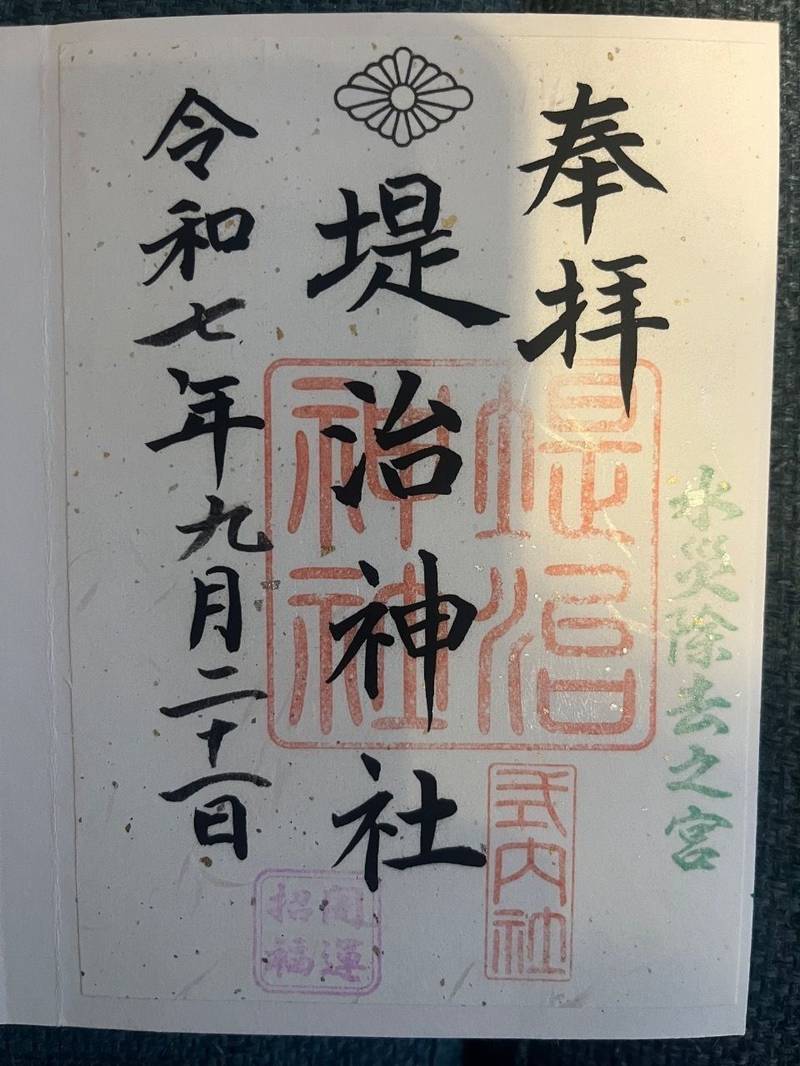 奉拝
水災除去之宮
堤治神社
堤治
神社
式内社
令和七年九月二十一日
開運
招福